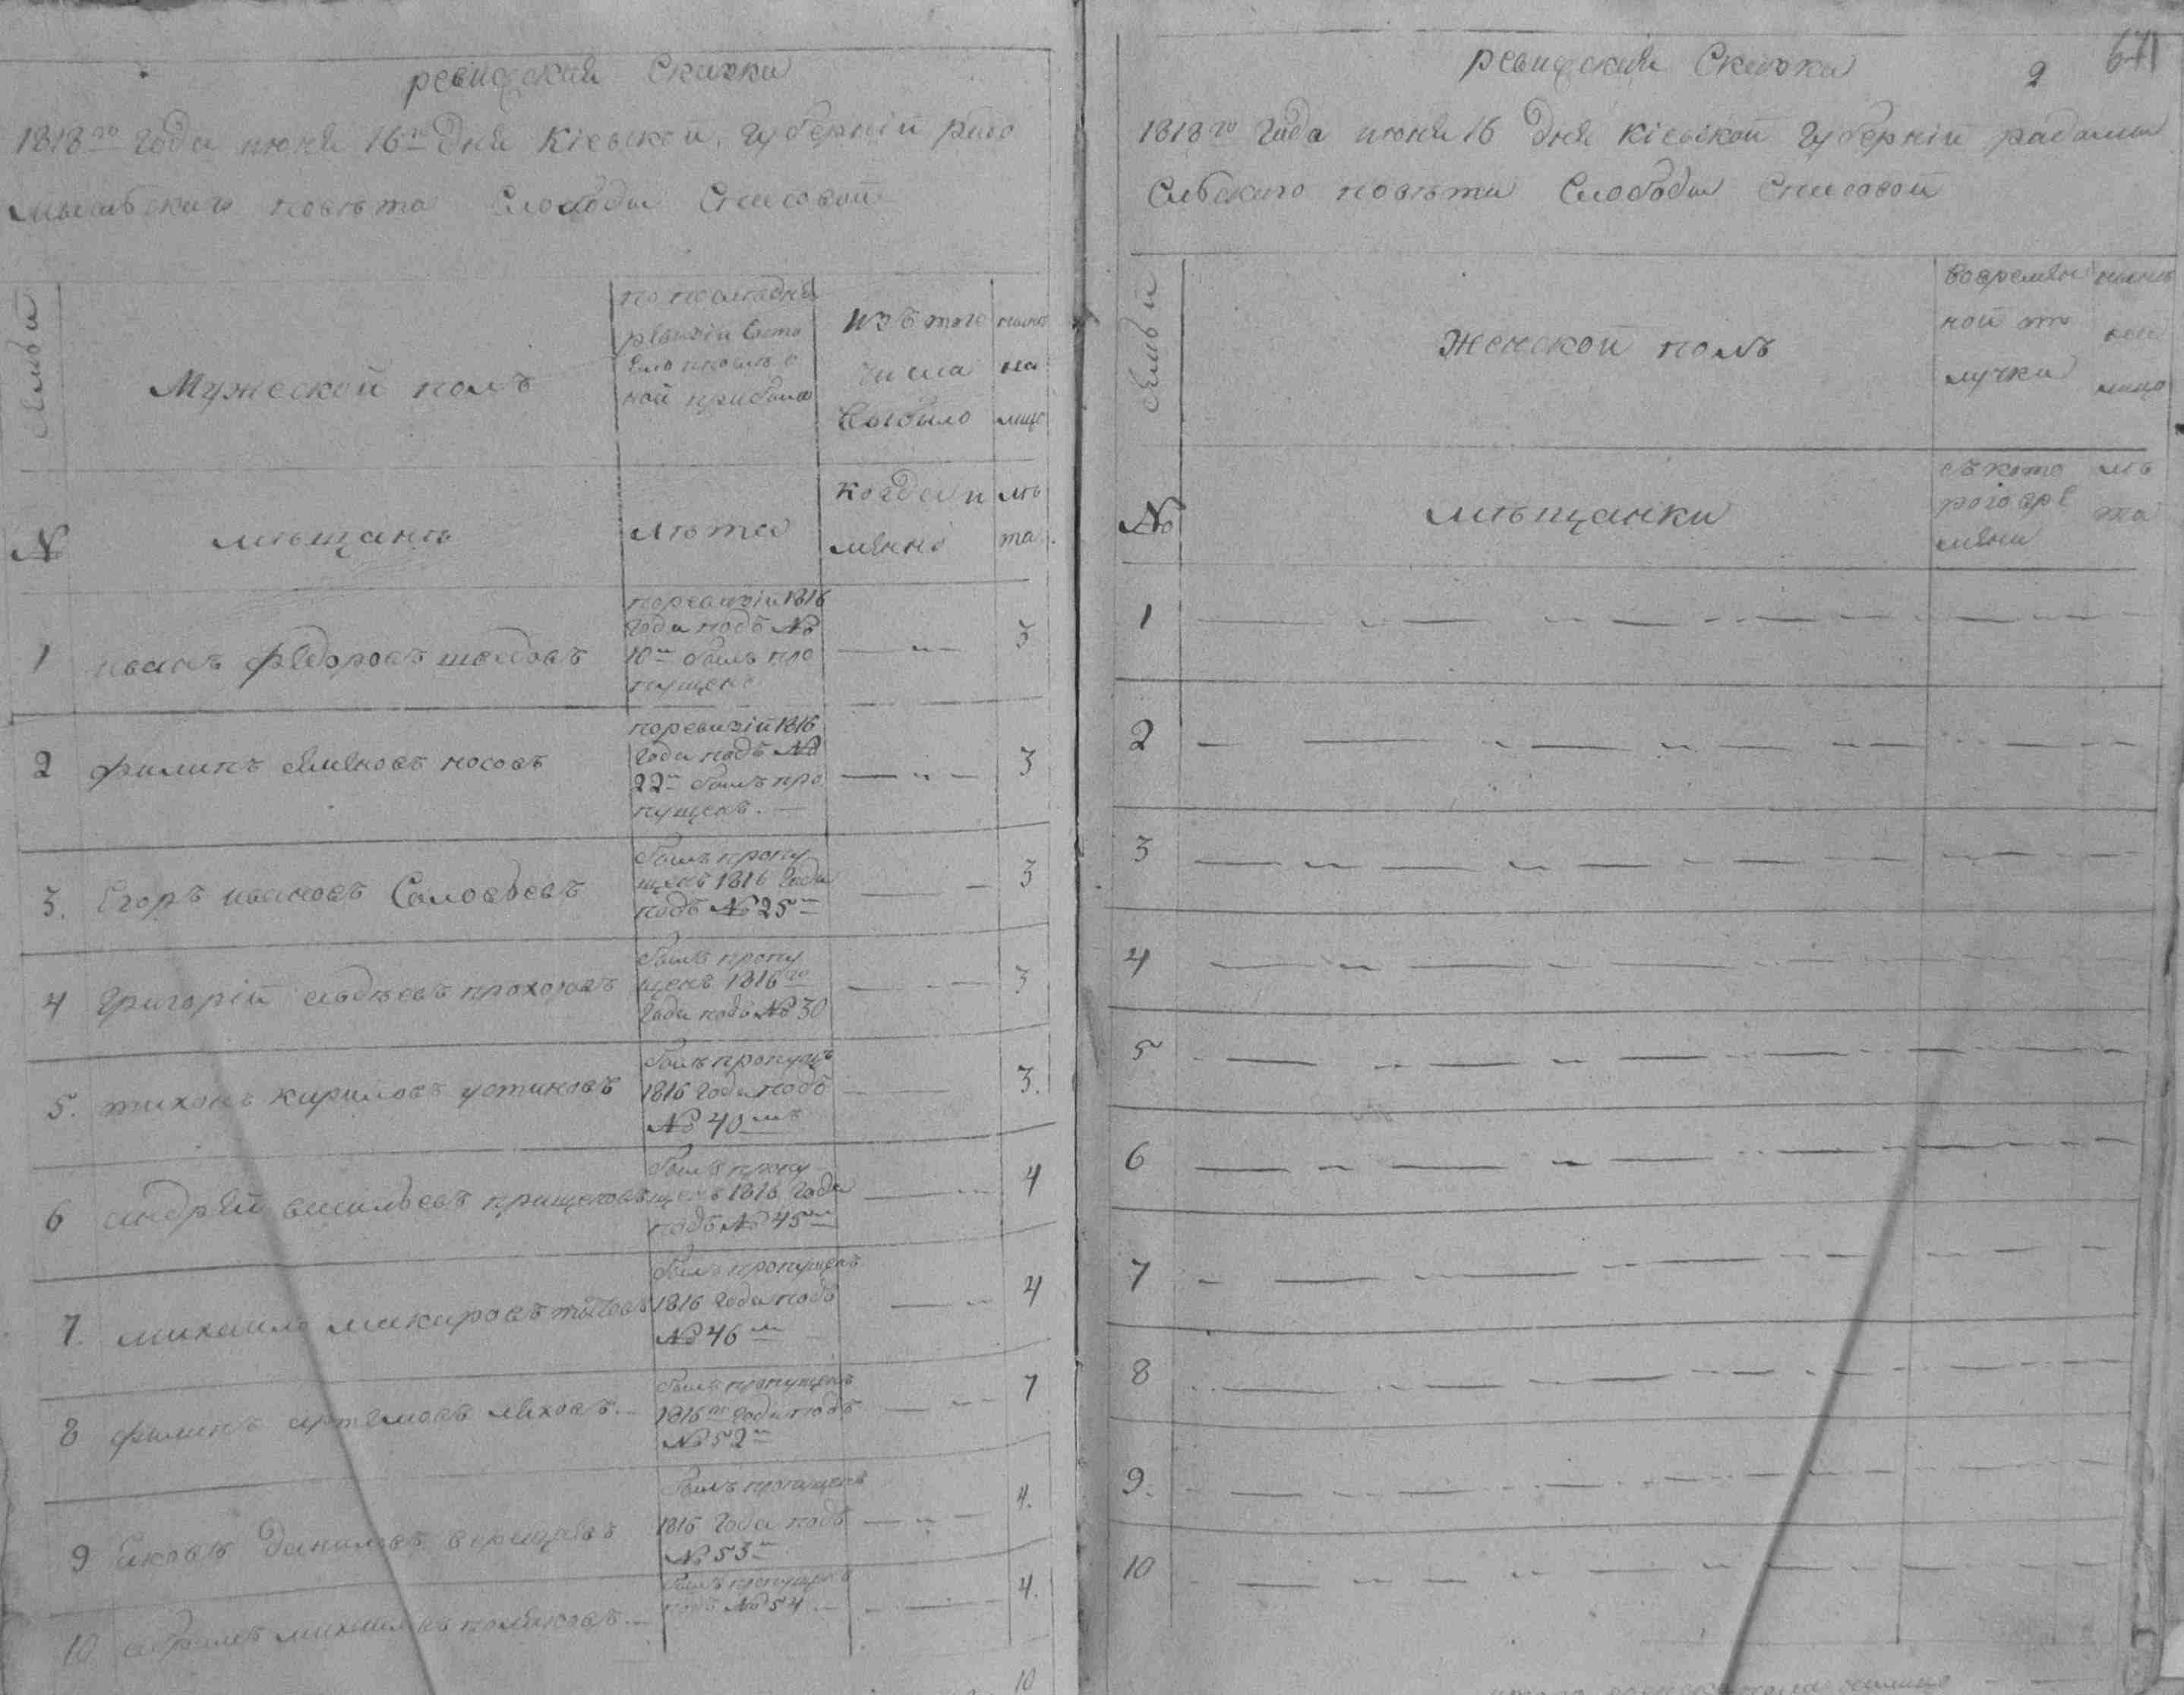 ревизская Сказка
1818го года июня 16го Дня Кіевской, губерніи радо
мысльского повѣта Слободы Спасовой
семьи
Мужеской полъ
по последней
ревизіи состо
яло и после о
ной прибыло
изъ того
числа
выбыло
ныне
на
лицо
№
мѣщанѣ
лѣта
когда и
менно
лѣ
та
1
иванъ федоровъ шведовъ
поревизіи 1816
года подъ №
10м былъ про
пущенъ
3
2
филипъ семеновъ носовъ
поревизій 1816
года подъ №
22м былъ про
пущенъ.
3
3.
Егоръ ивановъ Соловьевъ
былъ пропу
щенъ 1816 года
подъ № 25м
3
4
григорій авдѣевъ прохоровъ
былъ пропу
щенъ 1816го
года подъ № 30
3
5.
тихонъ кириловъ устиновъ
былъ пропущ
1816 года подъ
№ 40мъ
3.
6
андрей васильевъ
былъ пропу
щенъ 1816 года
подъ № 45м
4
7.
михаило макаровъ
былъ пропущенъ
1816 года подъ
№ 46м
4
8
филипъ артемовъ леховъ.
былъ пропущенъ
1816го года подъ
№ 52м
7
9
Яковъ Даниловъ
былъ пропущенъ
1816 года подъ
№ 53м
4.
10
абрамъ михайловъ поляковъ.
былъ пропущенъ
подъ № 54
4.
10
671
ревизская Сказка
2
1818го года июня 16 Дня Кіевской губерніи радомы
сльского повѣта Слободы Спасовой
семьи
женской полъ
вовремян
ной от
лучки
ныне
на
лицо
№
мѣщанки
съ кото
рого вре
мени
лѣ
та
1
2
3
4
5
6
7
8
9.
10